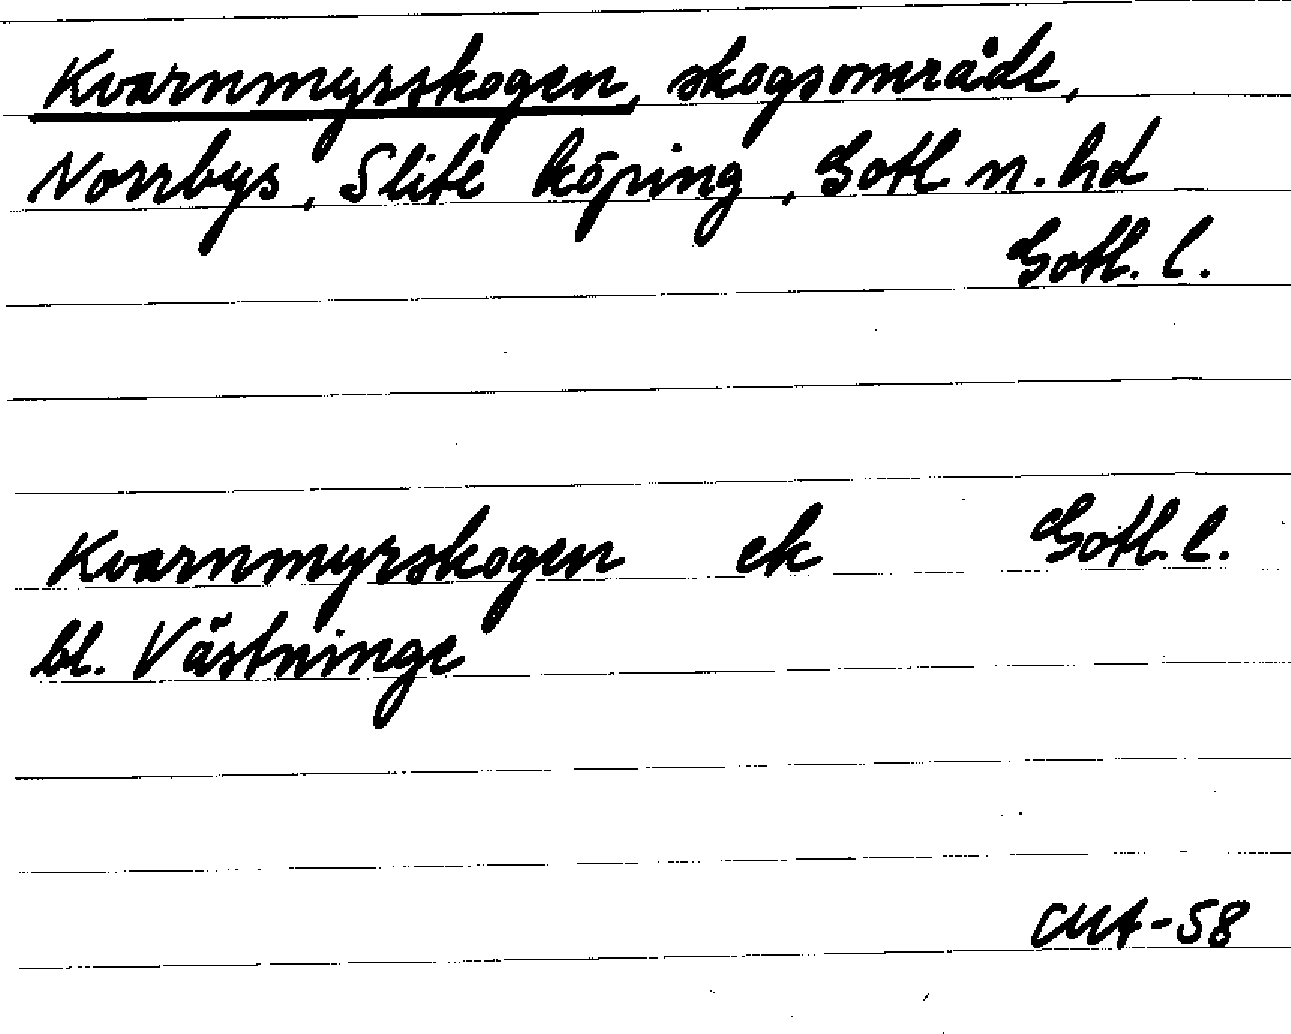 Kvarnmyrskogen, skogsområde,
Norrbys, Slite köping, Gotl n. hd
Gotl. l.
Kvarnmyrskogen ek Gotl. l.
bl. Västninge
CMA-58